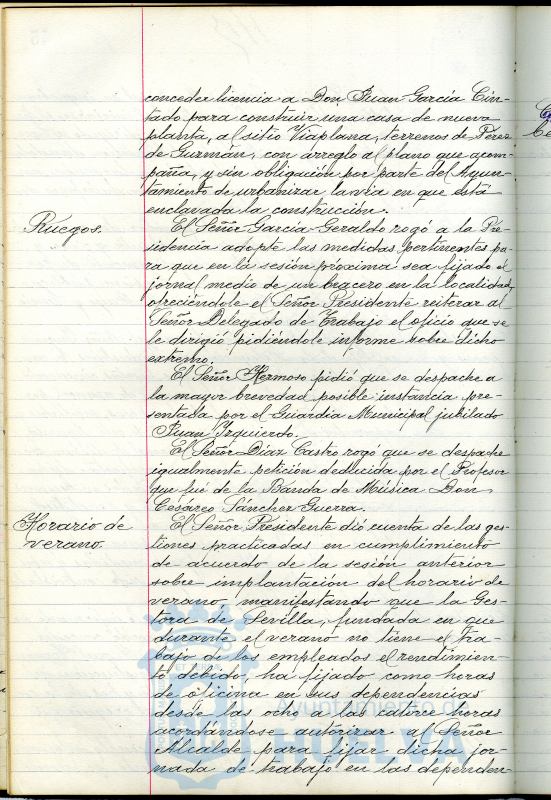 conceder licencia a Don Juan García Cin-
tado para construir una casa de nueva
planta, al sitio Viaplana, terrenos de Pérez
de Guzmán, con arreglo al plano que acom-
paña, y sin obligación por parte del Ayun-
tamiento de urbanizar la via en que está
enclavada la construcción.
Ruegos.
El Señor García Geraldo rogó a la Pre-
sidencia adopte las medidas pertinentes pa-
ra que en la sesión próxima sea fijado el
jornal medio de un bracero en la localidad,
ofreciéndole el Señor Presidente reiterar al
Señor Delegado de Trabajo el oficio que se
le dirigió pidiéndole informe sobre dicho
extremo.
El Señor Hermoso pidió que se despache a
la mayor brevedad posible instancia pre-
sentada por el Guardia Municipal jubilado
Juan Izquierdo.
El Señor Díaz Castro rogó que se despache
igualmente petición deducida por el Profesor
que fué de la Banda de Música Don
Cesáreo Sánchez Guerra.
Horario de
verano.
El Señor Presidente dió cuenta de las ges-
tiones practicadas en cumplimiento
de acuerdo de la sesión anterior
sobre implantación del horario de
verano, manifestando que la Ges-
tora de Sevilla, fundada en que
durante el verano no tiene el tra-
bajo de los empleados el rendimien-
to debido, ha fijado como horas
de oficina en sus dependencias
desde las ocho a las catorce horas
acordándose autorizar al Señor
Alcalde para fijar dicha jor-
nada de trabajo en las dependen-
Ayuntamiento de
HUELVA